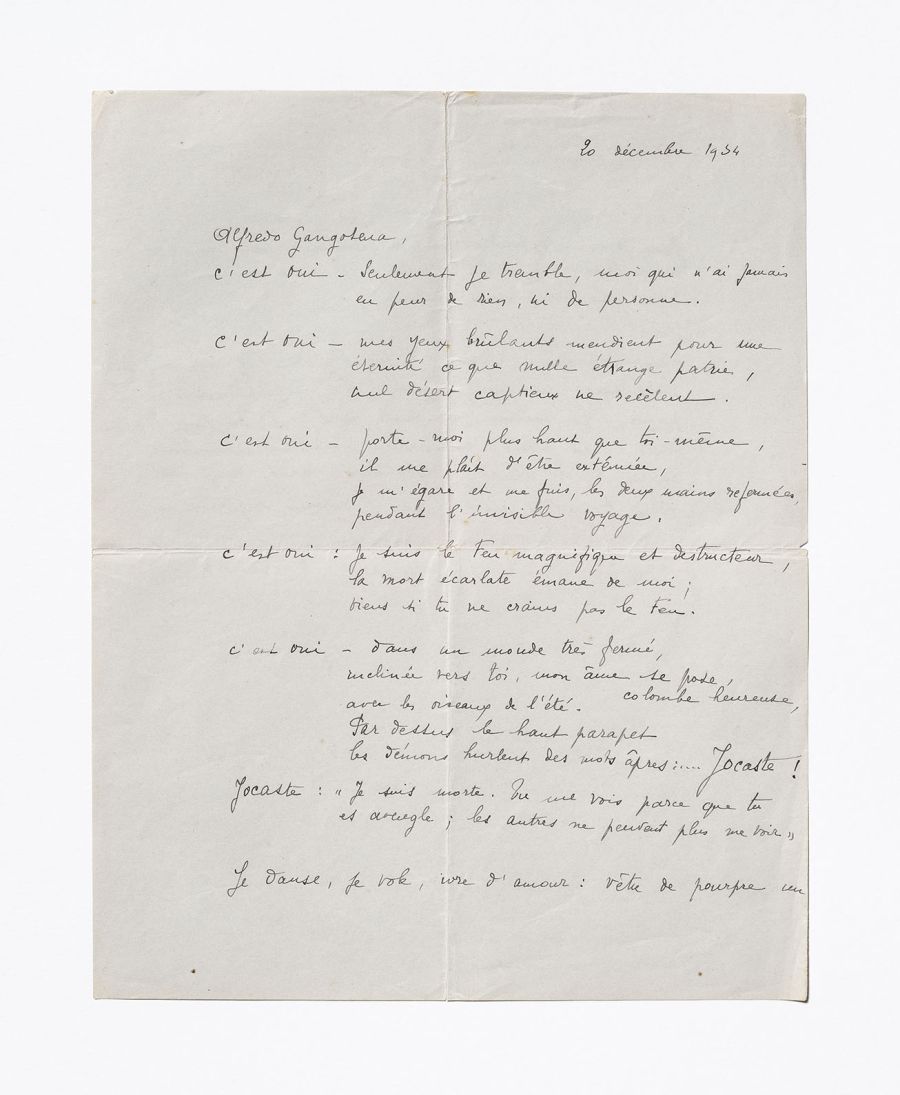 20 décembre 1934
Alfredo Gangotena,
c'est oui – Seulement je tremble, moi qui n'ai jamais
eu peur de rien, ni de personne.
c'est oui – mes yeux brûlants mendient pour une
éternité ce que nulle étrange patrie,
nul désert captieux ne recèlent.
c'est oui – porte-moi plus haut que toi-même,
il me plaît d'être exténuée,
je m'égare et me fuis, les deux mains refermées,
pendant l'invisible voyage.
c'est oui : je suis le Feu magnifique et destructeur,
la mort écarlate émane de moi ;
viens si tu ne crains pas le Feu.
c'est oui – dans un monde très fermé,
inclinée vers toi, mon âme se pose,
colombe heureuse,
avec les oiseaux de l'été.
Par dessus le haut parapet
les démons hurlent des mots âpres :.... Jocaste !
Jocaste : "Je suis morte. Tu me vois parce que tu
es aveugle ; les autres ne peuvent plus me voir"
Je danse, je vole, ivre d'amour : vêtu de pourpre un